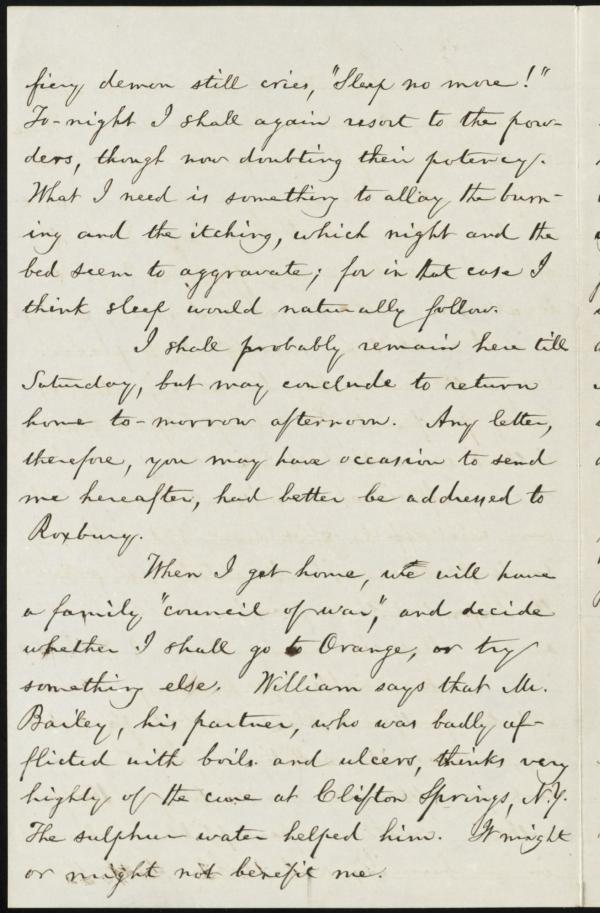 fiery demon still cries, "Sleep no more!"
To-night I shall again resort to the pow-
ders, though now doubting their potency.
What I need is something to allay the burn-
ing and the itching, which night and the
bed seem to aggravate; for in that case I
think sleep would naturally follow.
I shall probably remain here till
Saturday, but may conclude to return
home to-morrow afternoon. Any letter,
therefore, you may have occasion to send
me hereafter, had better be addressed to
Roxbury.
When I get home, we will have
a family "council of war," and decide
whether I shall go to Orange, or try
something else. William says that Mr.
Bailey, his partner, who was badly af-
flicted with boils and ulcers, thinks very
highly of the cure at Clifton Springs, N.Y.
The sulphur water helped him. It might
or might not benefit me.